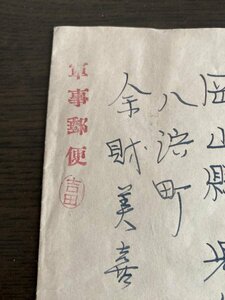 岡山縣
八浜町
余財美喜
軍事郵便
吉田